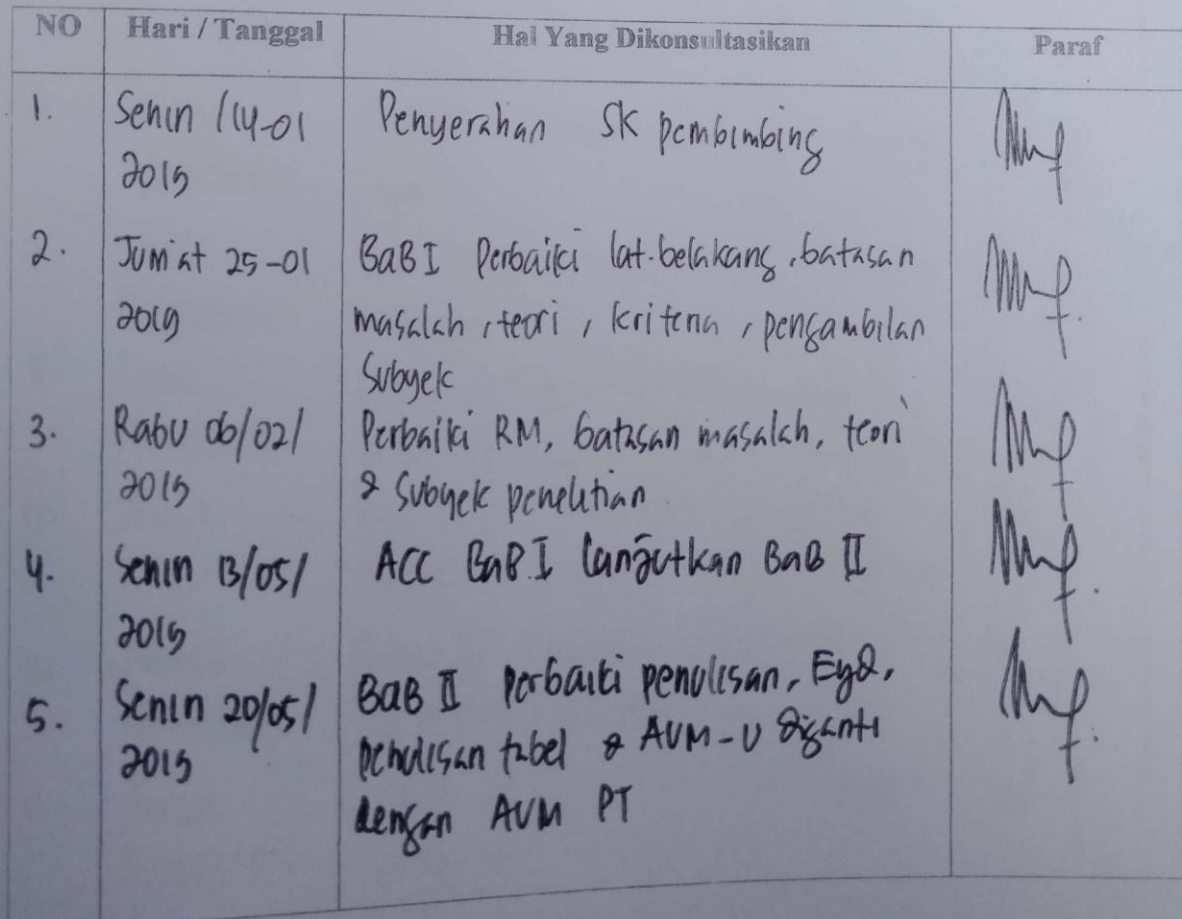 NO Hari / Tanggal Hal Yang Dikonsultasikan Paraf
1. Senin /14-01 Penyerahan SK pembimbing
2019
2. Jum'at 25-01 BaB I Perbaiki lat.belakang, batasan
2019 masalah, teori, kriteria, pengambilan
Subyek
3. Rabu 06/02/ Perbaiki RM, batasan masalah, teori
2019 & Subyek penelitian
4. Senin 13/05/ ACC BaB I lanjutkan BaB II
2019
5. Senin 20/05/ BaB II perbaiki penulisan, EyD,
2019 penulisan tabel & AUM-U diganti
dengan AUM PT